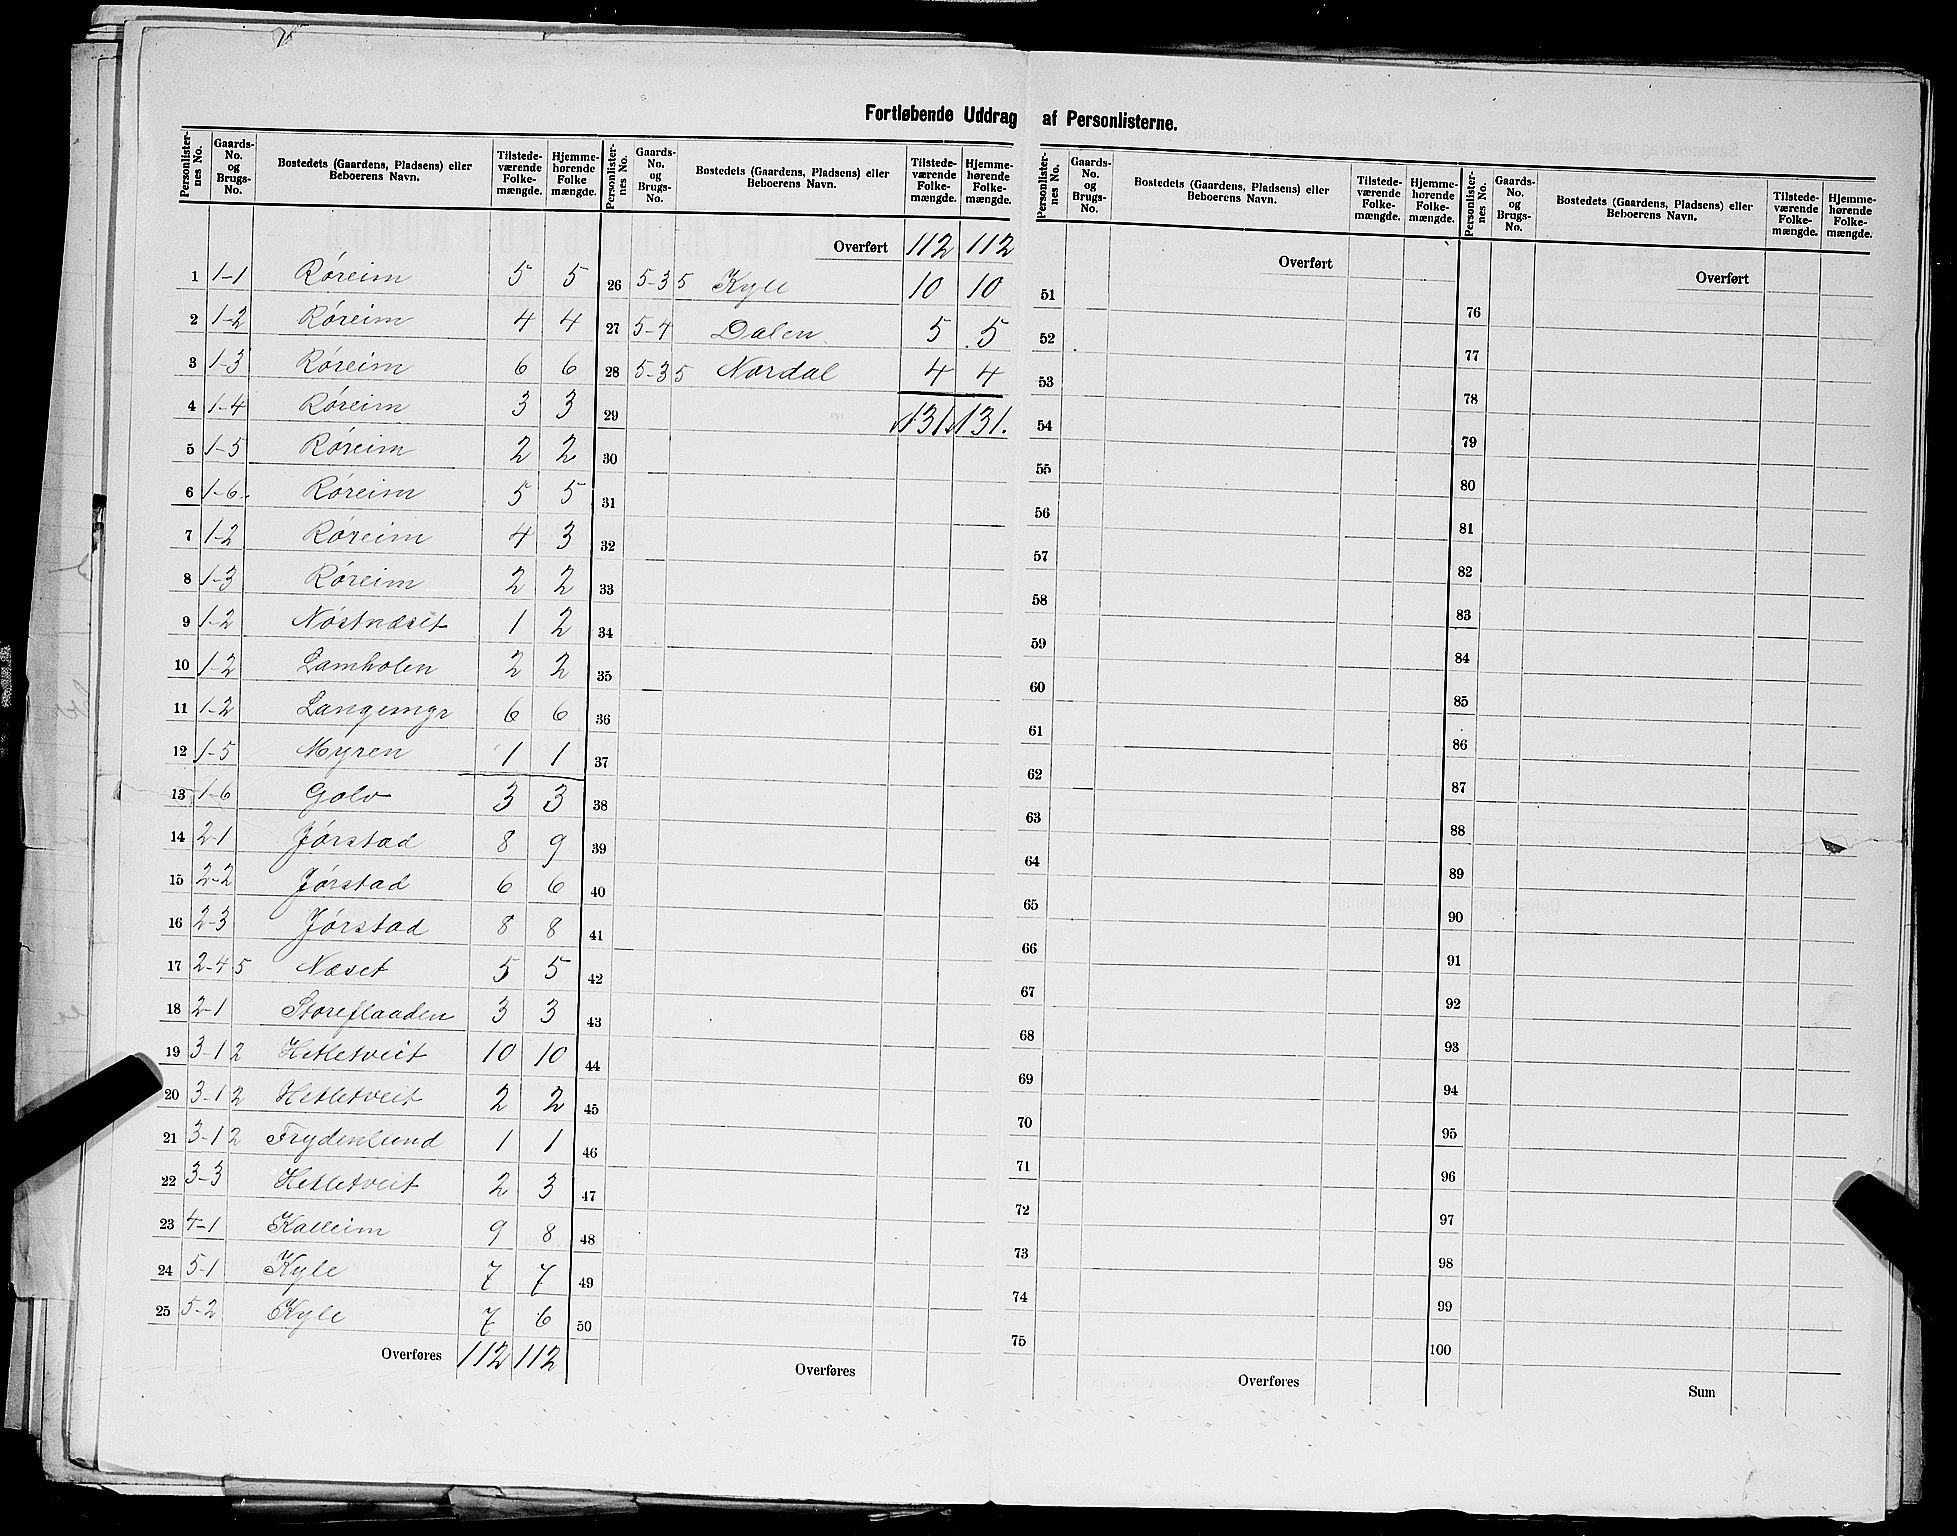 Fortløbende Uddrag af Personlisterne.
Personlister-nes No. | Gaards-No. og Brugs-No. | Bostedets (Gaardens, Pladsens) eller Beboerens Navn. | Tilstede-værende Folke-mængde. | Hjemme-hørende Folke mængde.
1 1-1 Røreim 5 5
2 1-2 Røreim 4 4
3 1-3 Røreim 6 6
4 1-4 Røreim 3 3
5 1-5 Røreim 2 2
6 1-6. Røreim 5 5
7 1-2 Røreim 4 3
8 1-3 Røreim 2 2
9 1-2 Nøstnæset 1 2
10 1-2 Lamholen 2 2
11 1-2 Langemyr 6 6
12 1-5 Myren 1 1
13 1-6 Golv 3 3
14 2-1 Jørstad 8 9
15 2-2 Jørstad 6 6
16 2-3 Jørstad 8 8
17 2-4 5 Næset 5 5
18 2-1 Storeflaaden 3 3
19 3-1 2 Hetletveit 10 10
20 3-1 2 Hetletveit 2 2
21 3-1 2 Frydenlund 1 1
22 3-3 Hetletveit 2 3
23 4-1 Kalleim 9 8
24 5-1 Kyle 7 7
25 5-2 Kyle 7 6
Overføres 112 112
Personlister-nes No. | Gaards-No. og Brugs-No. | Bostedets (Gaardens, Pladsens) eller Beboerens Navn. | Tilstede-værende Folke-mængde. | Hjemme-hørende Folke-mængde.
Overført 112 112
26 5-3 5 Kyle 10 10
27 5-4 Dalen 5 5
28 5-3 5 Nordal 4 4
29 131. 131.
30
31
32
33
34
35
36
37
38
39
40
41
42
43
44
45
46
47
48
49
50
Overføres
Personlister-nes No. | Gaards-No. og Brugs-No. | Bostedets (Gaardens, Pladsens) eller Beboerens Navn. | Tilstede-værende Folke-mængde. | Hjemme-hørende Folke-mængde.
Overført
51
52
53
54
55
56
57
58
59
60
61
62
63
64
65
66
67
68
69
70
71
72
73
74
75
Overføres
Personlister-nes No. | Gaards-No. og Brugs-No. | Bostedets (Gaardens, Pladsens) eller Beboerens Navn. | Tilstede-værende Folke-mængde. | Hjemme-hørende Folke-mængde.
Overført
76
77
78
79
80
81
82
83
84
85
86
87
88
89
90
91
92
93
94
95
96
97
98
99
100
Sum